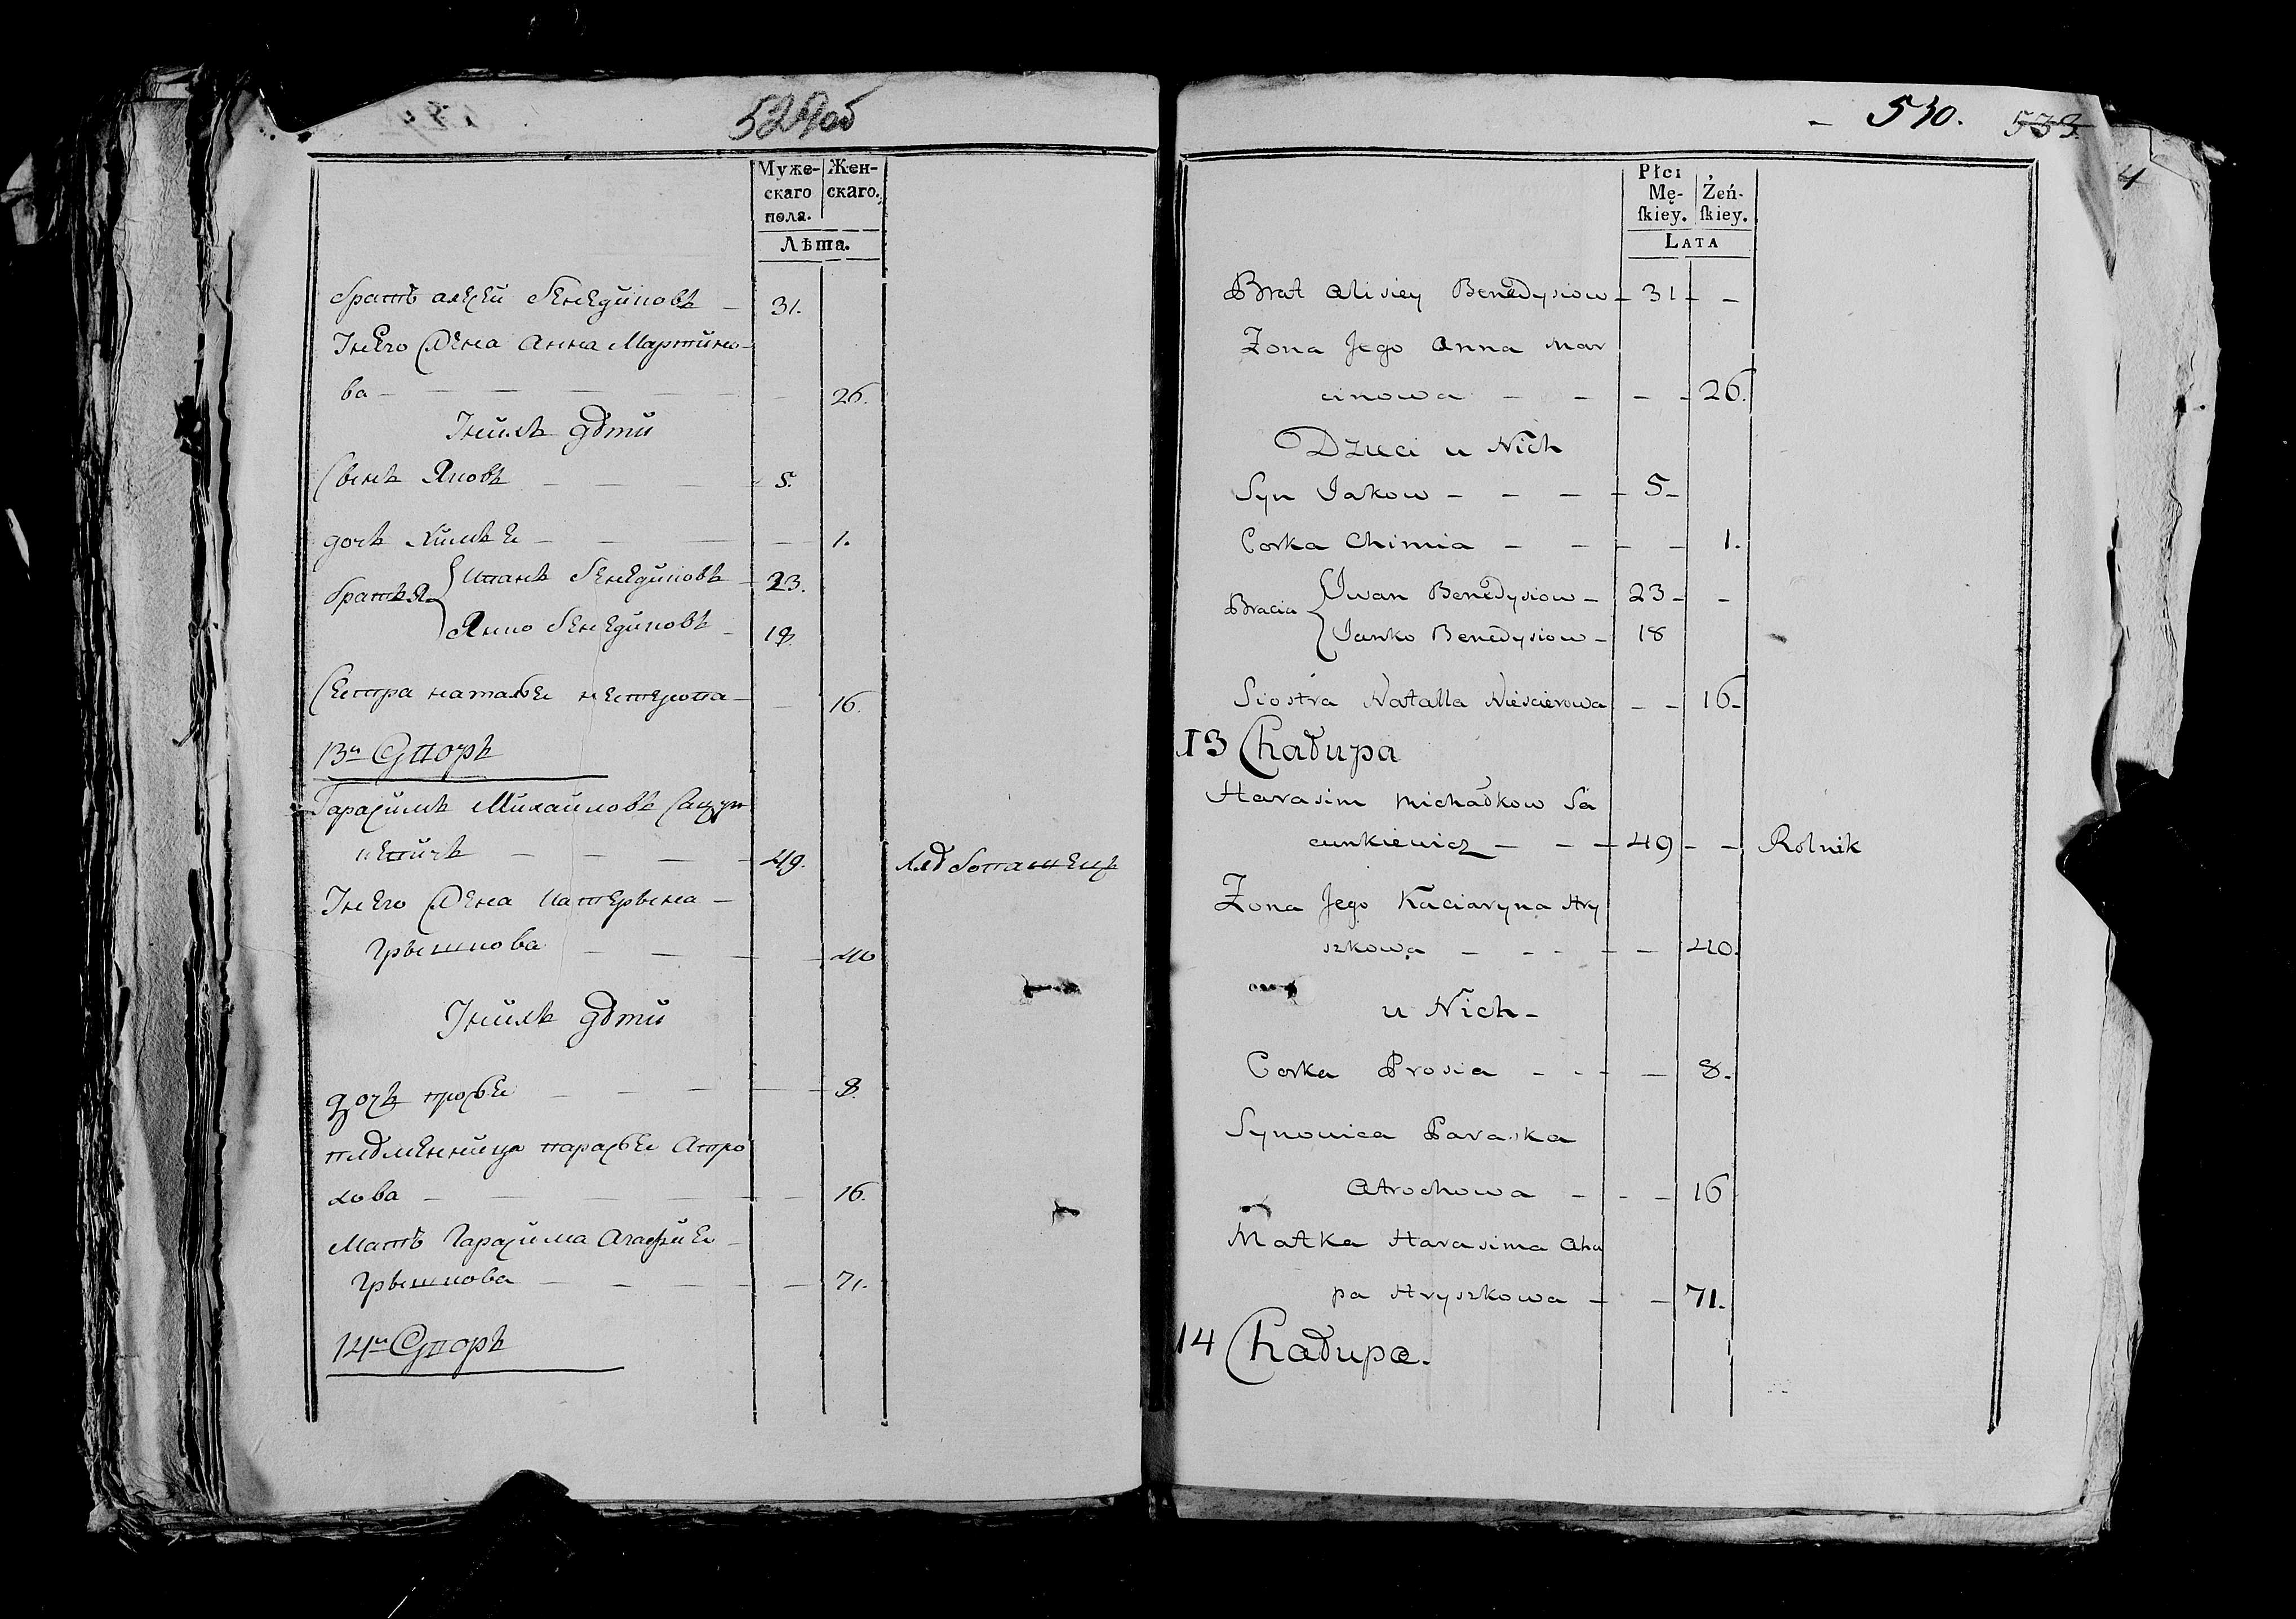 529об
Муже-
скаго
пола.
Жен-
скаго.
Лѣта.
братъ алѣсѣй бенедиковъ 31.
Унего жена Анна Мартино-
ва 26.
Унихъ дѣти
Сынъ Яковъ 5.
дочь химъе 1.
братья Иванъ бенедиковъ 23.
Янко бенедиковъ 18.
Сестра наталье нестерова 16.
13й Дворъ
Гарасимъ Михаиловъ Сацун
кевичъ 49. хлѣбопашецъ
Унего жена катерына
грышкова 40
Унихъ дѣти
дочь просье 8.
племенница парасье Атро
хова 16.
Мать Гарасима Агафие
грышкова 71.
14й Дворъ
530. 533.
4
Płci
Mę-
ſkiey.
Żeń-
ſkiey.
LATA
Brat Alisiey Benedysiow 31
Zona Jego Anna Mar
cinowa 26.
Dzieci u Nich
Syn Jakow 5
Corka Chimia 1.
Bracia Iwan Benedysiow 23
Janko Benedysiow 18
Siostra Natalla Nieścierowa 16
13 Chałupa
Harasim Michałkow Sa
cunkiewicz 49 Rolnik
Zona Jego Kaciaryna Hry
szkowa 40.
u Nich
Corka Prosia 8.
Synowica Paraska
Atrochowa 16
Matka Harasima Aha
pa Hryszkowa 71.
14 Chałupa.